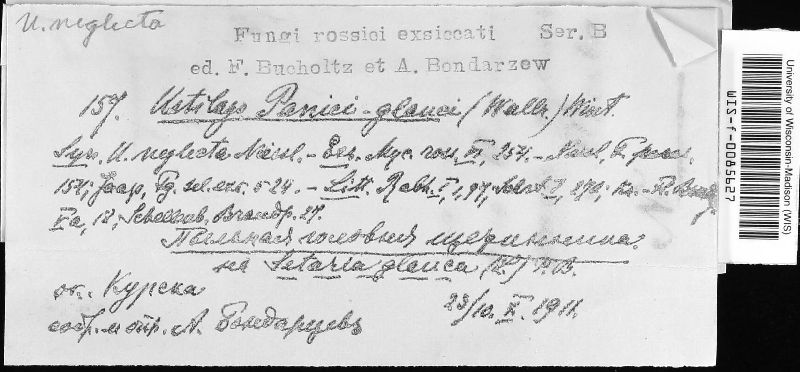 U. neglecta
Fungi rossici exsiccati Ser. B
ed. F. Bucholtz et A. Bondarzew
157. Ustilago Panici-glauci (Wallr.) Wint.
Syn. U. neglecta Niessl. - Exs. Myc. ross. VI, 254. -
154; Jaap, Fg. sel. exs. 524. - Litt. Rabh. I, 1, 97; 279;
Va, 12; Schellenb. Brandp. 27.
Пыльная головня щетинника.
на Setaria glauca (L.) P. B.
ок. Курска 23/10. X. 1911.
собр. и опр. А. Бондарцевъ
University of Wisconsin-Madison (WIS)
WIS-f-0085627